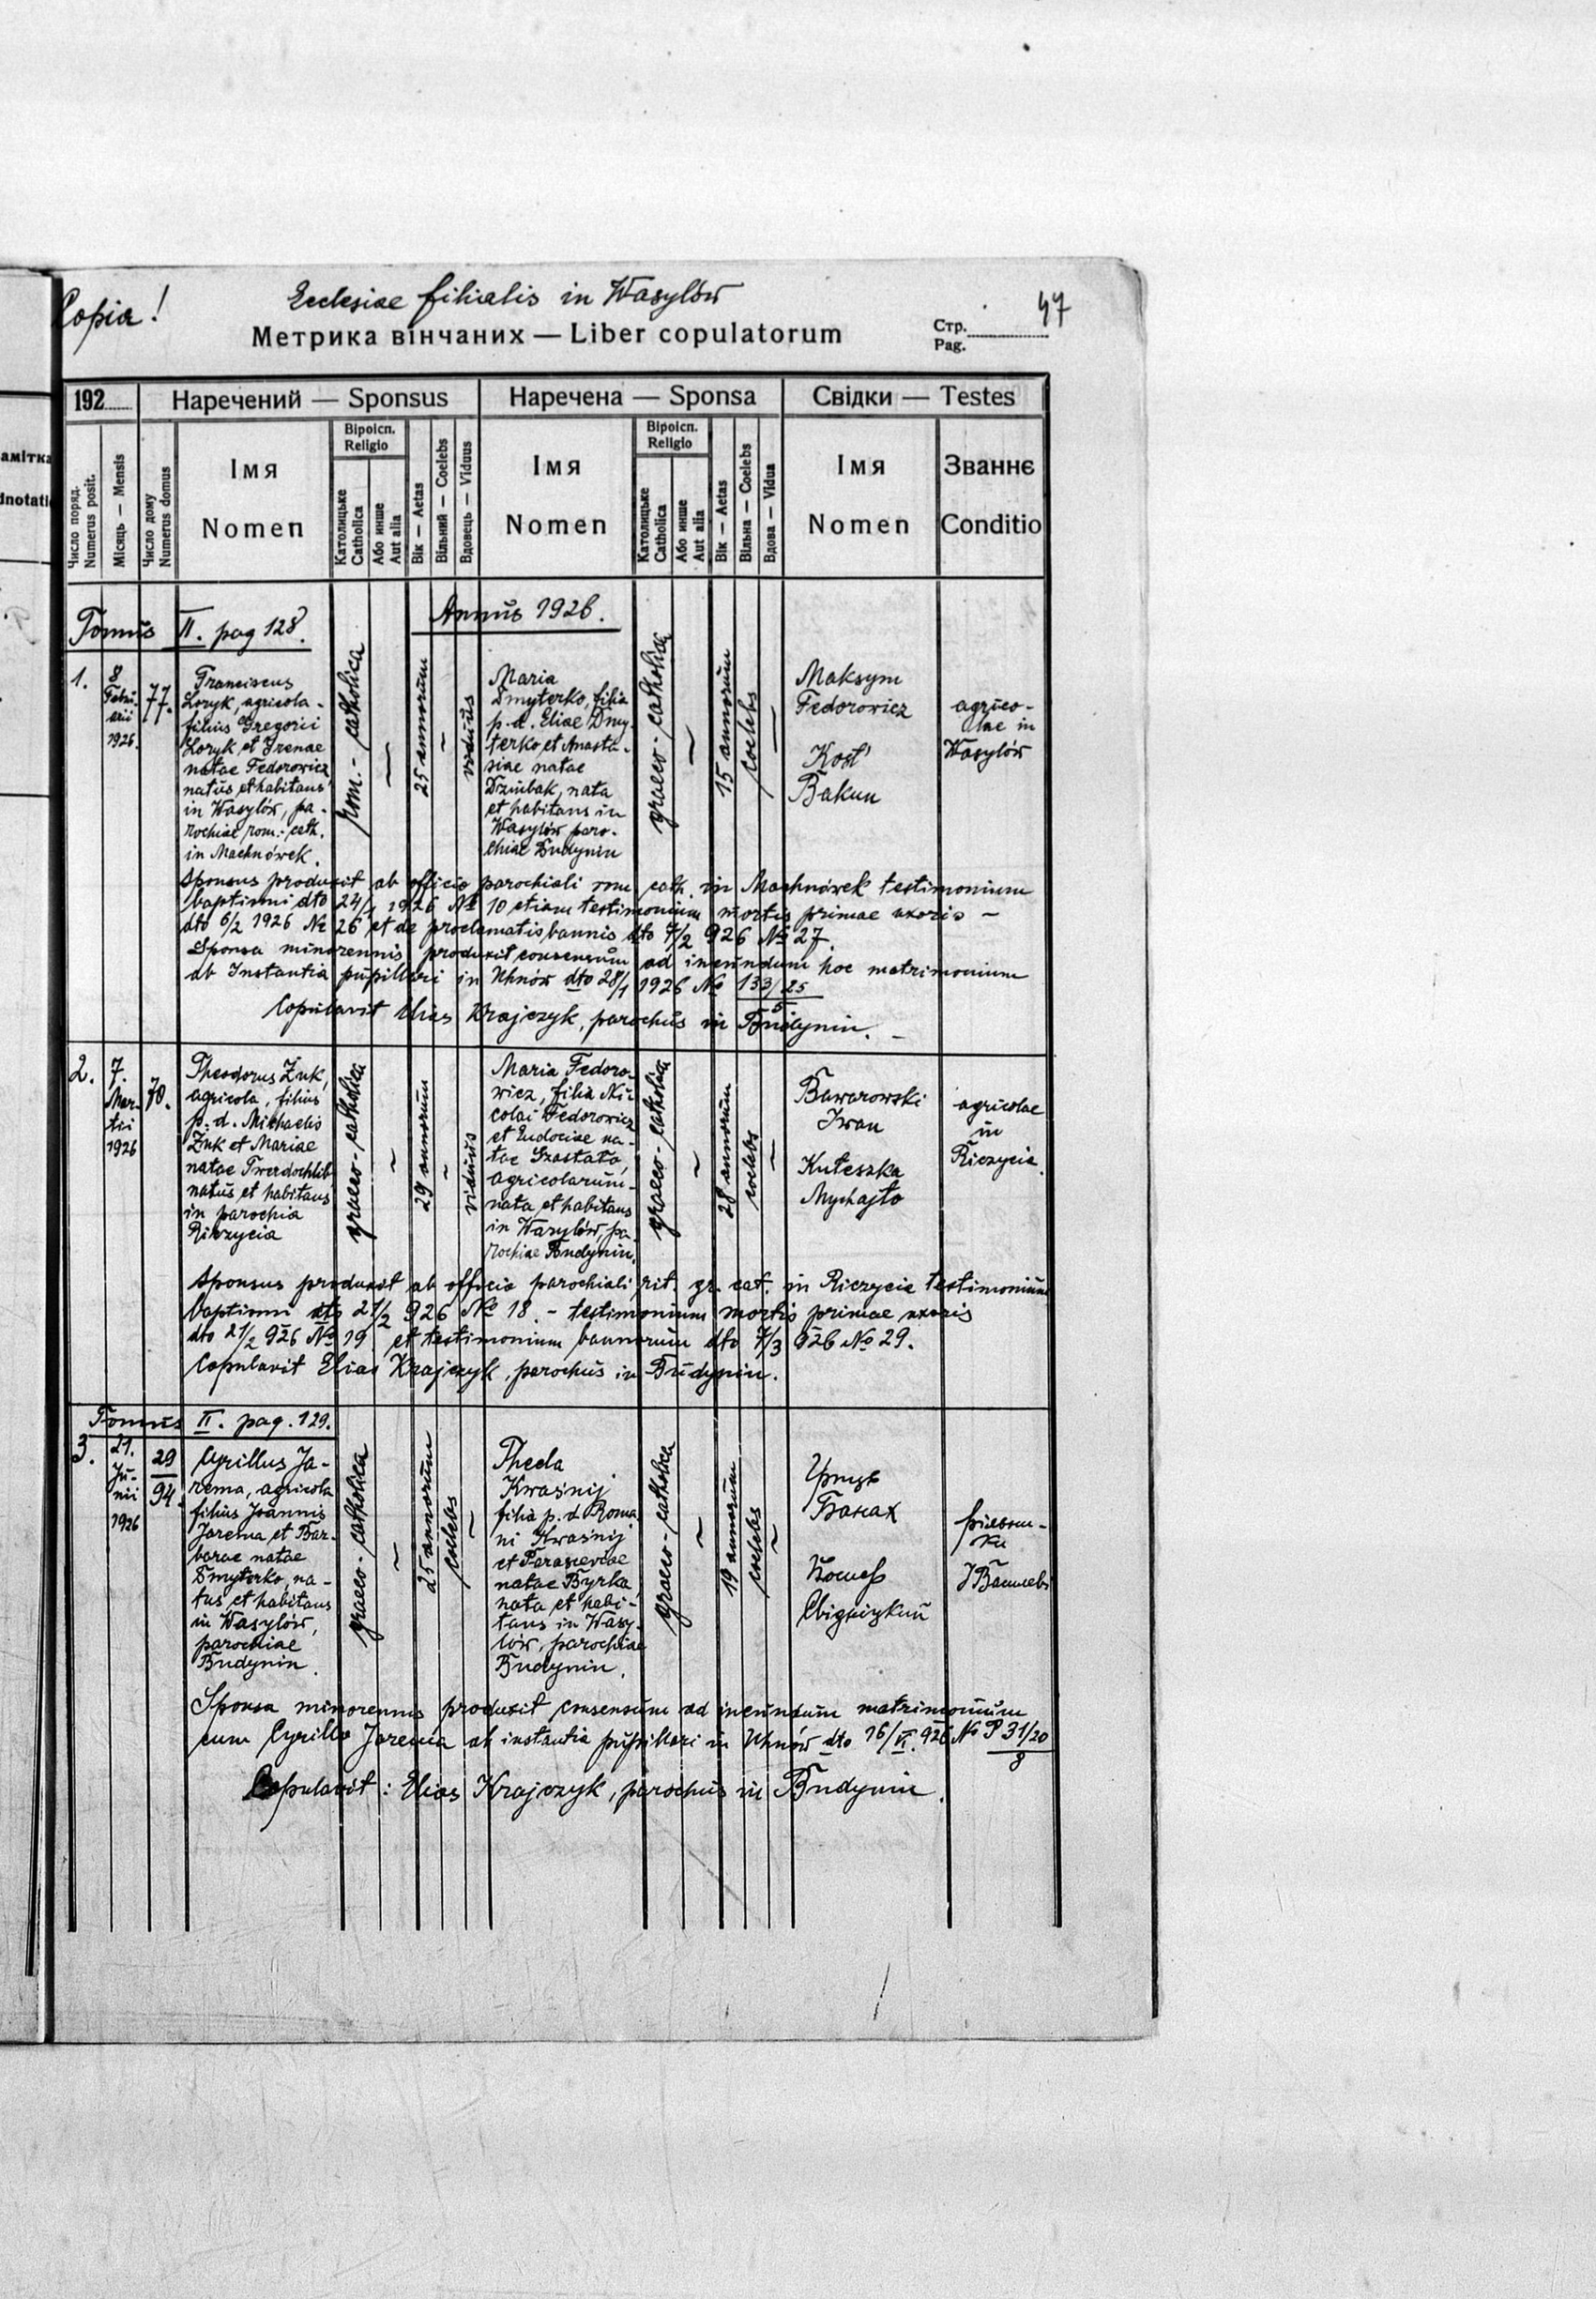 Copia!
Ecclesiae filialis in Wasylów
47
Метрика вінчаних — Liber copulatorum
Стр.
Pag.
амітка
dnotati
192
Наречений — Sponsus
Наречена — Sponsa
Свідки — Testes
Число поряд.
Numerus posit.
Місяць — Mensis
Число дому
Numerus domus
Імя
Nomen
Віроісп.
Religio
Католицьке
Catholica
Або инше
Aut alia
Вік — Aetas
Вільний — Coelebs
Вдовець — Viduus
Імя
Nomen
Віроісп.
Religio
Католицьке
Catholica
Або инше
Aut alia
Вік — Aetas
Вільна — Coelebs
Вдова — Vidua
Імя
Nomen
Званнє
Conditio
Tomus II. pag 128.
Annus 1926.
1.
8
Febru-
arii
1926.
77.
Franciscus
Loryk, agricola-
filius Gregorii
Loryk et Irenae
natae Fedorowicz
natus et habitans
in Wasylów, pa-
rochiae rom.-cath.
in Machnówek.
rom.-catholica
25 annorum
viduus
Maria
Dmyterko, filia
p.d. Eliae Dmy-
terko et Anasta-
siae natae
Dziubak, nata
et habitans in
Wasylów paro-
chiae Budynin
graeco-catholica
15 annorum
coelebs
Maksym
Fedorowicz
Kost'
Bakun
agrico-
lae in
Wasylów
Sponsus produxit ab officio parochiali rom. cath. in Machnówek testimonium
baptismi dto 24/1 1926 № 10 etiam testimonium mortis primae uxoris -
dto 6/2 1926 № 26 et de proclamatis bannis dto 7/2 926 № 27.
Sponsa minorennis produxit consensum ad ineundum hoc matrimonium
ab Instantia pupillari in Uhnów dto 28/1 1926 № 133/25
5
Copulavit Elias Krajczyk, parochus in Budynin. -
2.
7.
Mar-
tii
1926
70.
Theodorus Żuk,
agricola, filius
p.d. Michaelis
Żuk et Mariae
natae Twerdochlib
natus et habitans
in parochia
Riczycia
graeco-catholica
29 annorum
viduus
Maria Fedoro-
wicz, filia Ni-
colai Fedorowicz
et Eudociae na-
tae Szastało,
agricolarum-
nata et habitans
in Wasylów, pa-
rochiae Budynin.
graeco-catholica
28 annorum
coelebs
Baworowski
Iwan
Kuteszka
Mychajło
agricolae
in
Riczycia.
Sponsus produxit ab officio parochiali rit. gr. cat. in Riczycia testimonium
baptismi dto 21/2 926 № 18. - testimonium mortis primae uxoris
dto 21/2 926 № 19 et testimonium bannorum dto 7/3 926 № 29.
Copulavit Elias Krajczyk, parochus in Budynin.
Tomus II. pag. 129.
3.
21.
Ju-
nii
1926
29
94.
Cyrillus Ja-
rema, agricola
filius Joannis
Jarema et Bar-
barae natae
Dmyterko, na-
tus et habitans
in Wasylów,
parochiae
Budynin.
graeco-catholica
25 annorum
coelebs
Theda
Kwaśnij
filia p.d Roma-
ni Kwaśnij
et Parasceviae
natae Byrka,
nata et habi-
tans in Wasy-
lów, parochiae
Budynin.
graeco-catholica
19 annorum
coelebs
Грицъ
Банах
Йосиф
Свідніцкий
рільни-
ки
Sponsa minorennis produxit consensum ad ineundum matrimonium
cum Cyrillo Jarema ab instantia pupillari in Uhnów dto 16/VI. 926 № P 31/20
8
Copulavit: Elias Krajczyk, parochus in Budynin.